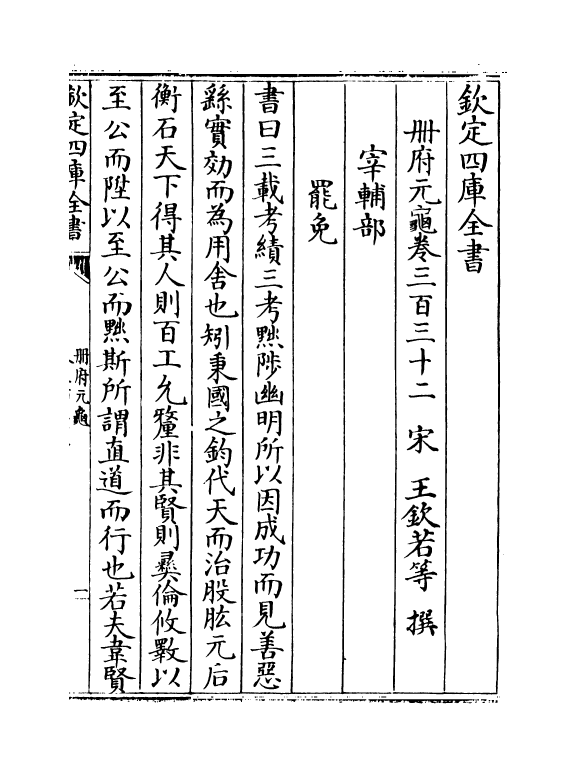 欽定四庫全書
冊府元龜卷三百三十二　宋　王欽若等　撰
宰輔部
罷免
書曰三載考績三考黜陟幽明所以因成功而見善惡
繇實効而為用舍也矧秉國之鈞代天而治股肱元后
衡石天下得其人則百工允釐非其賢則彞倫攸斁以
至公而陞以至公而黜斯所謂直道而行也若夫韋賢
欽定四庫全書
冊府元龜
一